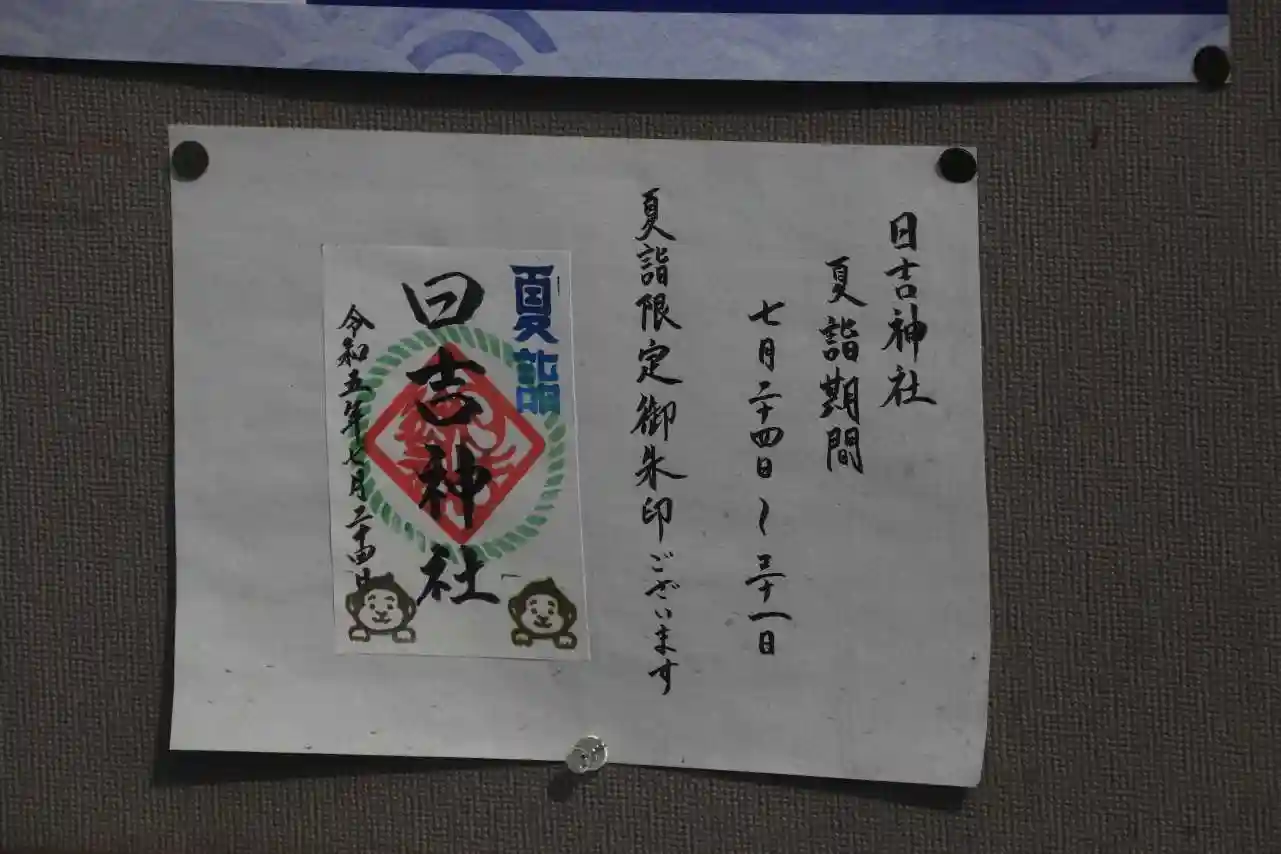 日吉神社
夏詣期間
七月二十四日～三十一日
夏詣限定御朱印ございます
夏詣
日吉神社
令和五年七月二十四日